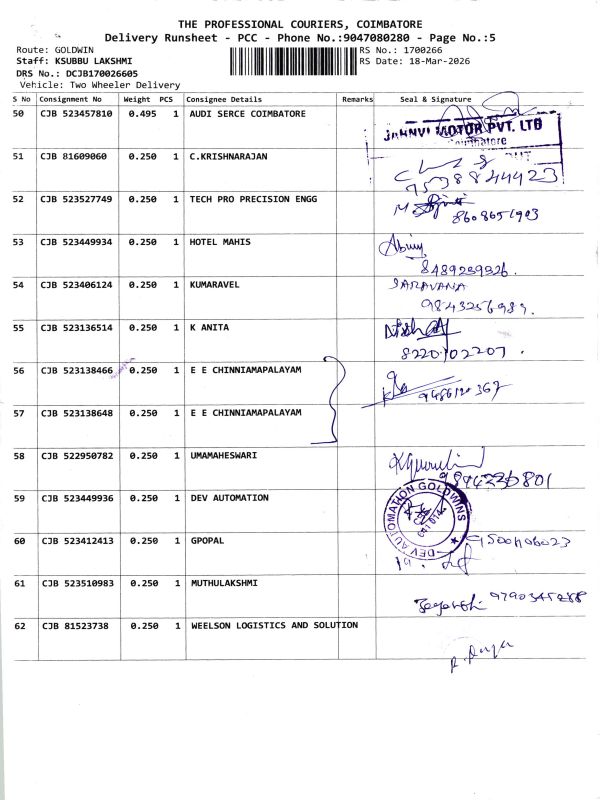 THE PROFESSIONAL COURIERS, COIMBATORE
Delivery Runsheet - PCC - Phone No.:9047080280 - Page No.:5
Route: GOLDWIN
RS No.: 1700266
Staff: KSUBBU LAKSHMI
RS Date: 18-Mar-2026
DRS No.: DCJB170026605
Vehicle: Two Wheeler Delivery
S No Consignment No Weight PCS Consignee Details Remarks Seal & Signature
50 CJB 523457810 0.495 1 AUDI SERCE COIMBATORE
JAHNVI MOTOR PVT. LTD
Coimbatore
51 CJB 81609060 0.250 1 C.KRISHNARAJAN
7538844423
52 CJB 523527749 0.250 1 TECH PRO PRECISION ENGG
8608651903
53 CJB 523449934 0.250 1 HOTEL MAHIS
8489289926.
54 CJB 523406124 0.250 1 KUMARAVEL
SARAVANA
9843256989.
55 CJB 523136514 0.250 1 K ANITA
8220102207.
56 CJB 523138466 0.250 1 E E CHINNIAMAPALAYAM
9486120367
57 CJB 523138648 0.250 1 E E CHINNIAMAPALAYAM
58 CJB 522950782 0.250 1 UMAMAHESWARI
59 CJB 523449936 0.250 1 DEV AUTOMATION
DEV AUTOMATION GOLDWINS
60 CJB 523412413 0.250 1 GPOPAL
61 CJB 523510983 0.250 1 MUTHULAKSHMI
9790345288
62 CJB 81523738 0.250 1 WEELSON LOGISTICS AND SOLUTION